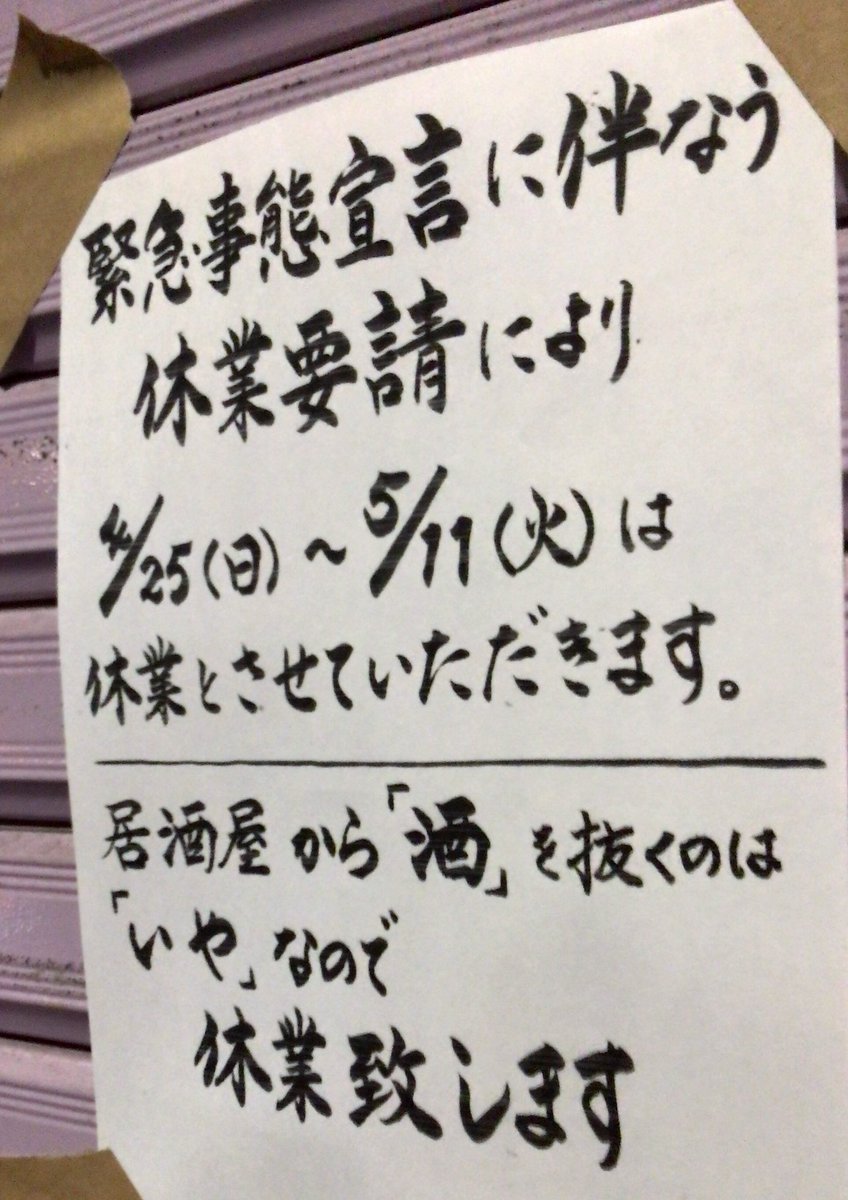 緊急事態宣言に伴なう
休業要請により
4/25(日)～5/11(火)は
休業とさせていただきます。
居酒屋から「酒」を抜くのは
「いや」なので
休業致します